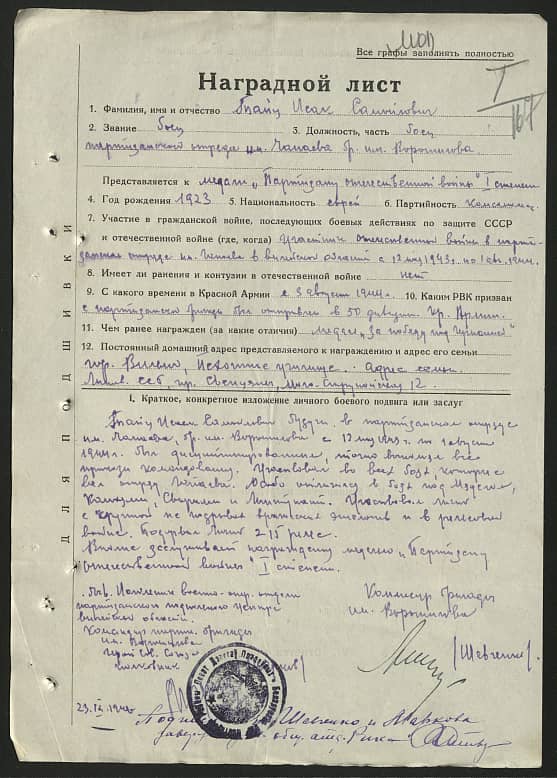 Все графы заполнять полностью
I
Наградной лист
1. Фамилия, имя и отчество Исак Самойлович
2. Звание боец 3. Должность, часть боец
партизанского отряда им. Чапаева бр. им. Ворошилова
Представляется к медали „Партизану отечественной войны" I степени
4. Год рождения 1923 5. Национальность еврей 6. Партийность
7. Участие в гражданской войне, последующих боевых действиях по защите СССР
и отечественной войне (где, когда) Участник отечественной войны в парти-
занском отряде им. Чапаева в Вилейской области с 12 мая 1943г. по 1 авг. 1944г.
8. Имеет ли ранения и контузии в отечественной войне нет
9. С какого времени в Красной Армии с 3 августа 1944г. 10. Каким РВК призван
с партизанской бригады был отправлен в 50 дивизию.
11. Чем ранее награжден (за какие отличия) медаль „За победу над Германией"
12. Постоянный домашний адрес представляемого к награждению и адрес его семьи
гор. Вильно, Пехотное училище. Адрес семьи
ССР, гор. 12
I. Краткое, конкретное изложение личного боевого подвига или заслуг
Исак Самойлович будучи в партизанском отряде
им. Чапаева, бр. им. Ворошилова с 12 мая 1943г. по 1 августа
1944г. был дисциплинированным, точно выполнял все
приказы командования. Участвовал во всех боях которые
вел отряд Чапаева. Особо отличился в боях под Мяделем,
и Участвовал лично
с группой по подрыву вражеских эшелонов и в рельсовой
войне. Подорвал лично 215 рельс.
Вполне заслуживает награждения медалью „Партизану
отечественной войны" I степени.
отдела
партизанского центра
Вилейской области.
Командир партиз. бригады
им. Ворошилова
Герой Сов. Союза
полковник
Комиссар бригады
им. Ворошилова
/Шевченко/
23.IX.1944г.
Шевченко и Маркова
ДЛЯ ПОДШИВКИ